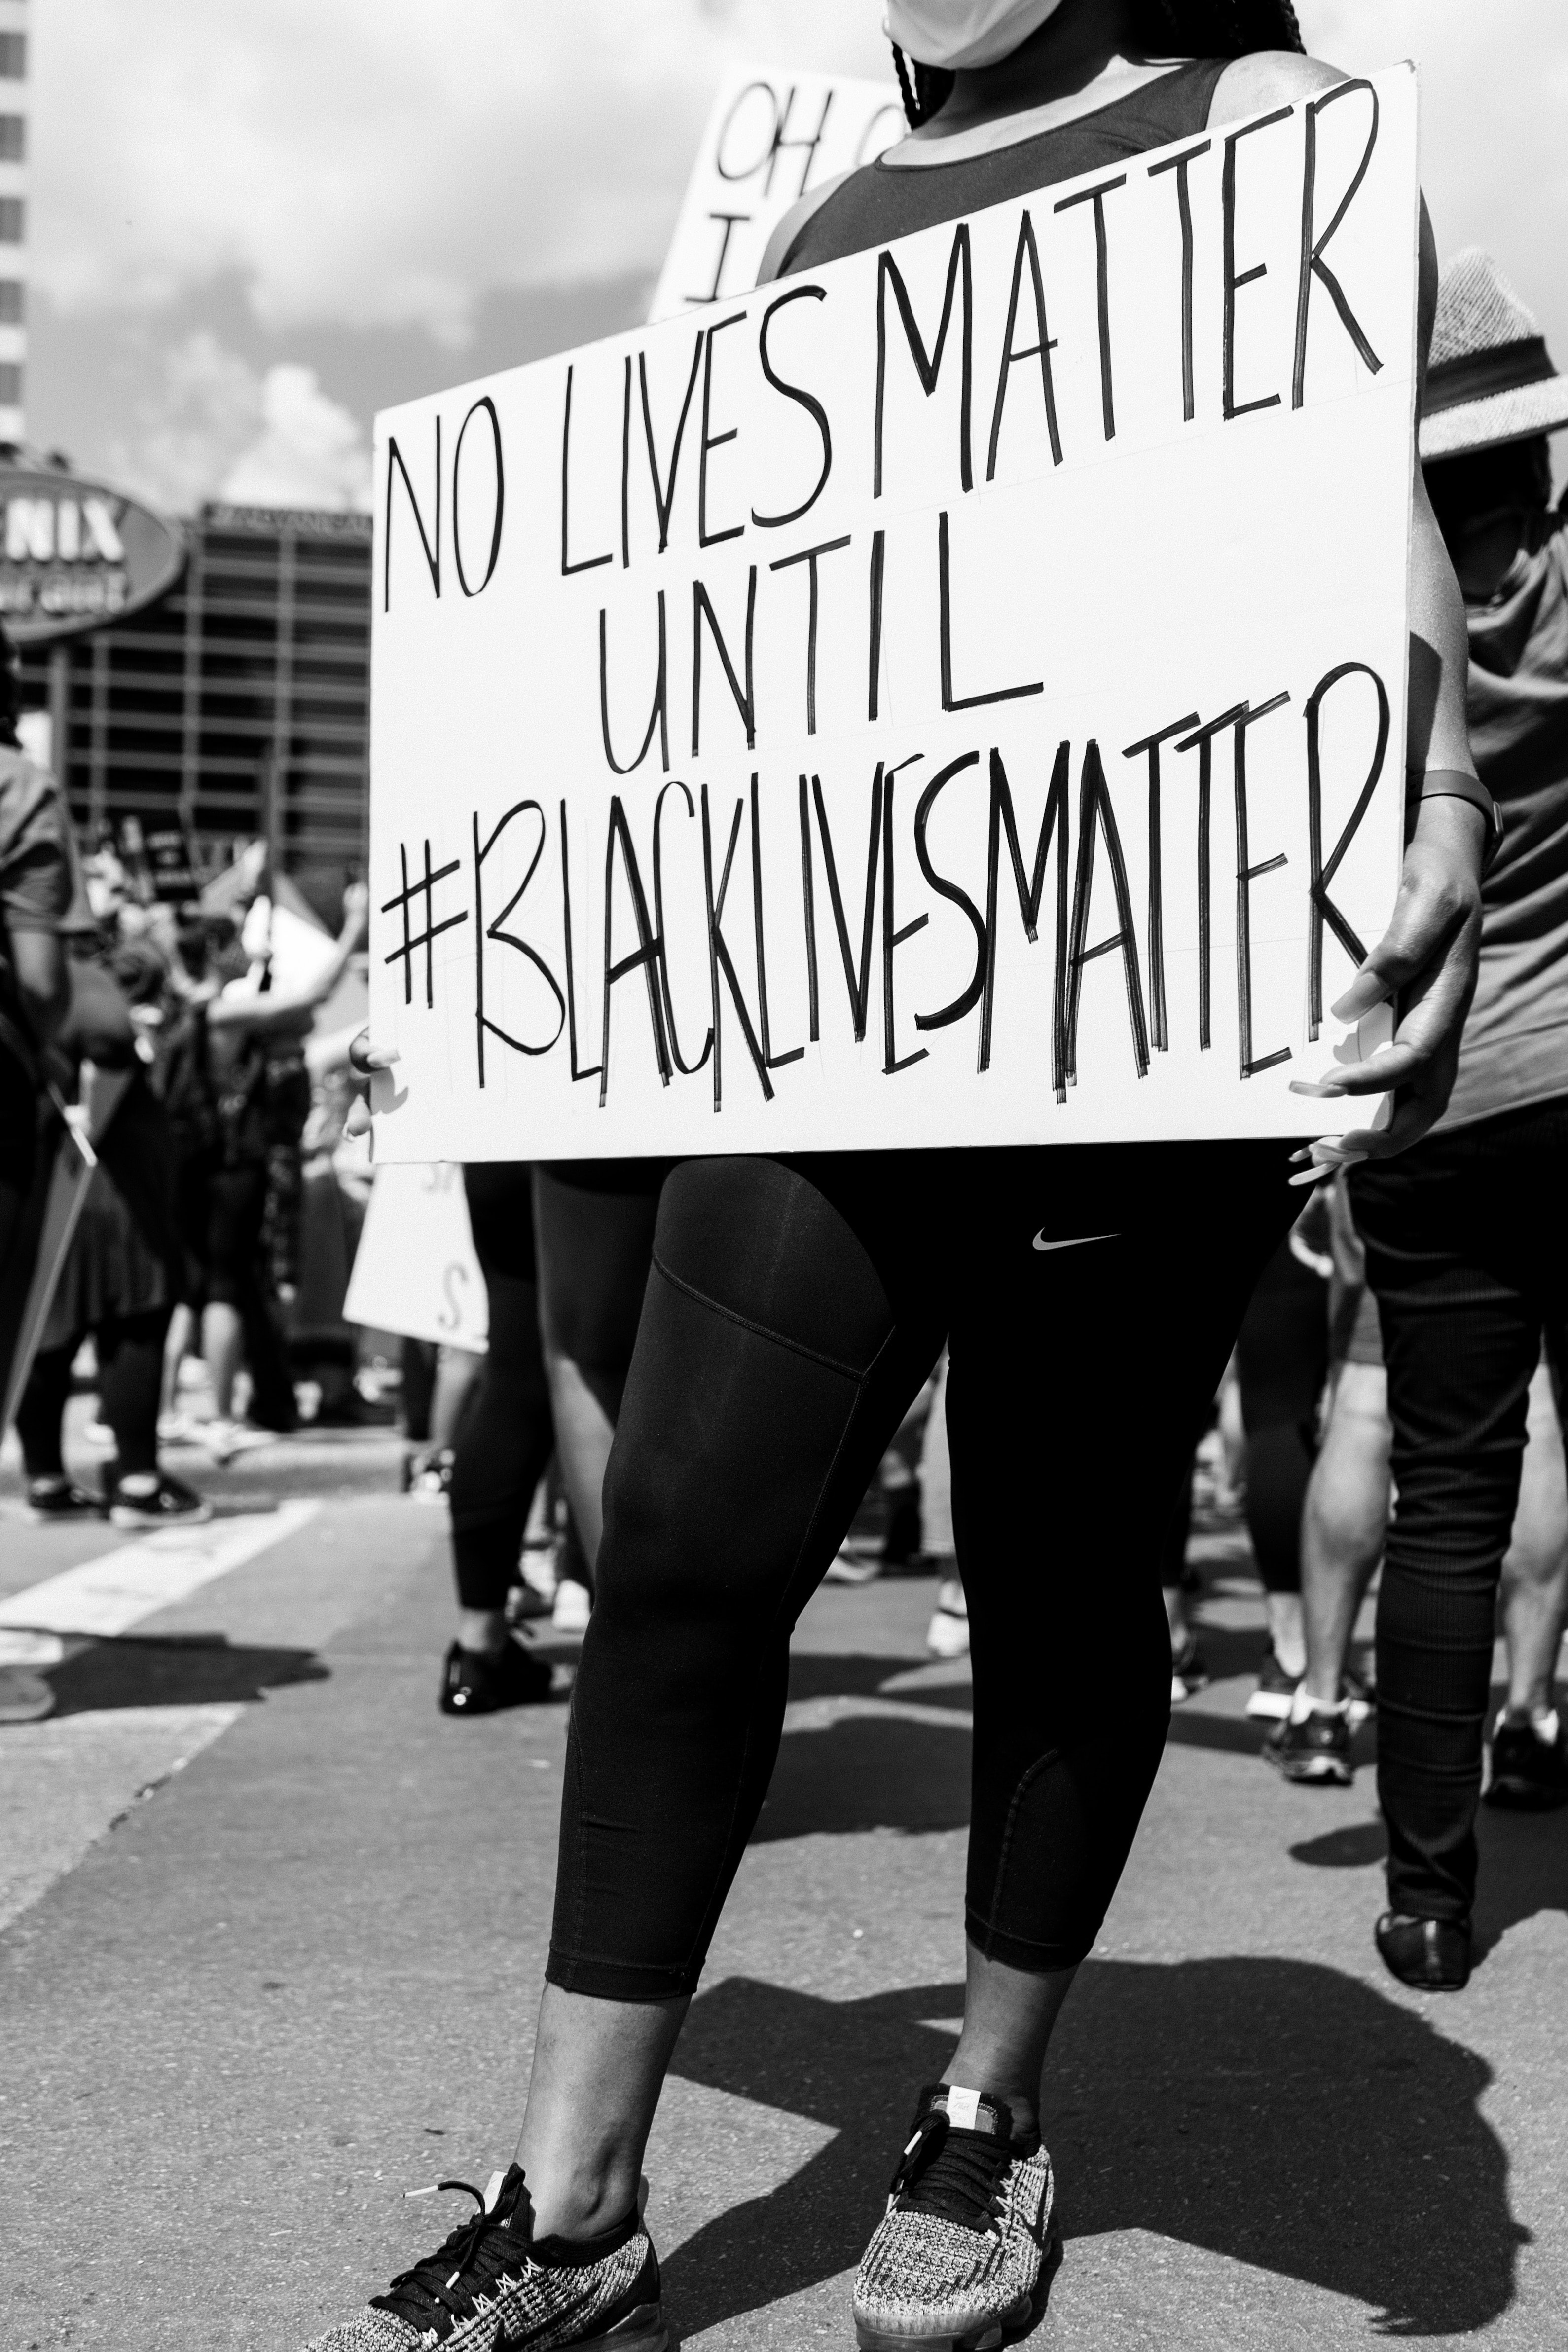 OH
I
NO LIVES MATTER
UNTIL
#BLACKLIVESMATTER
NIX
S